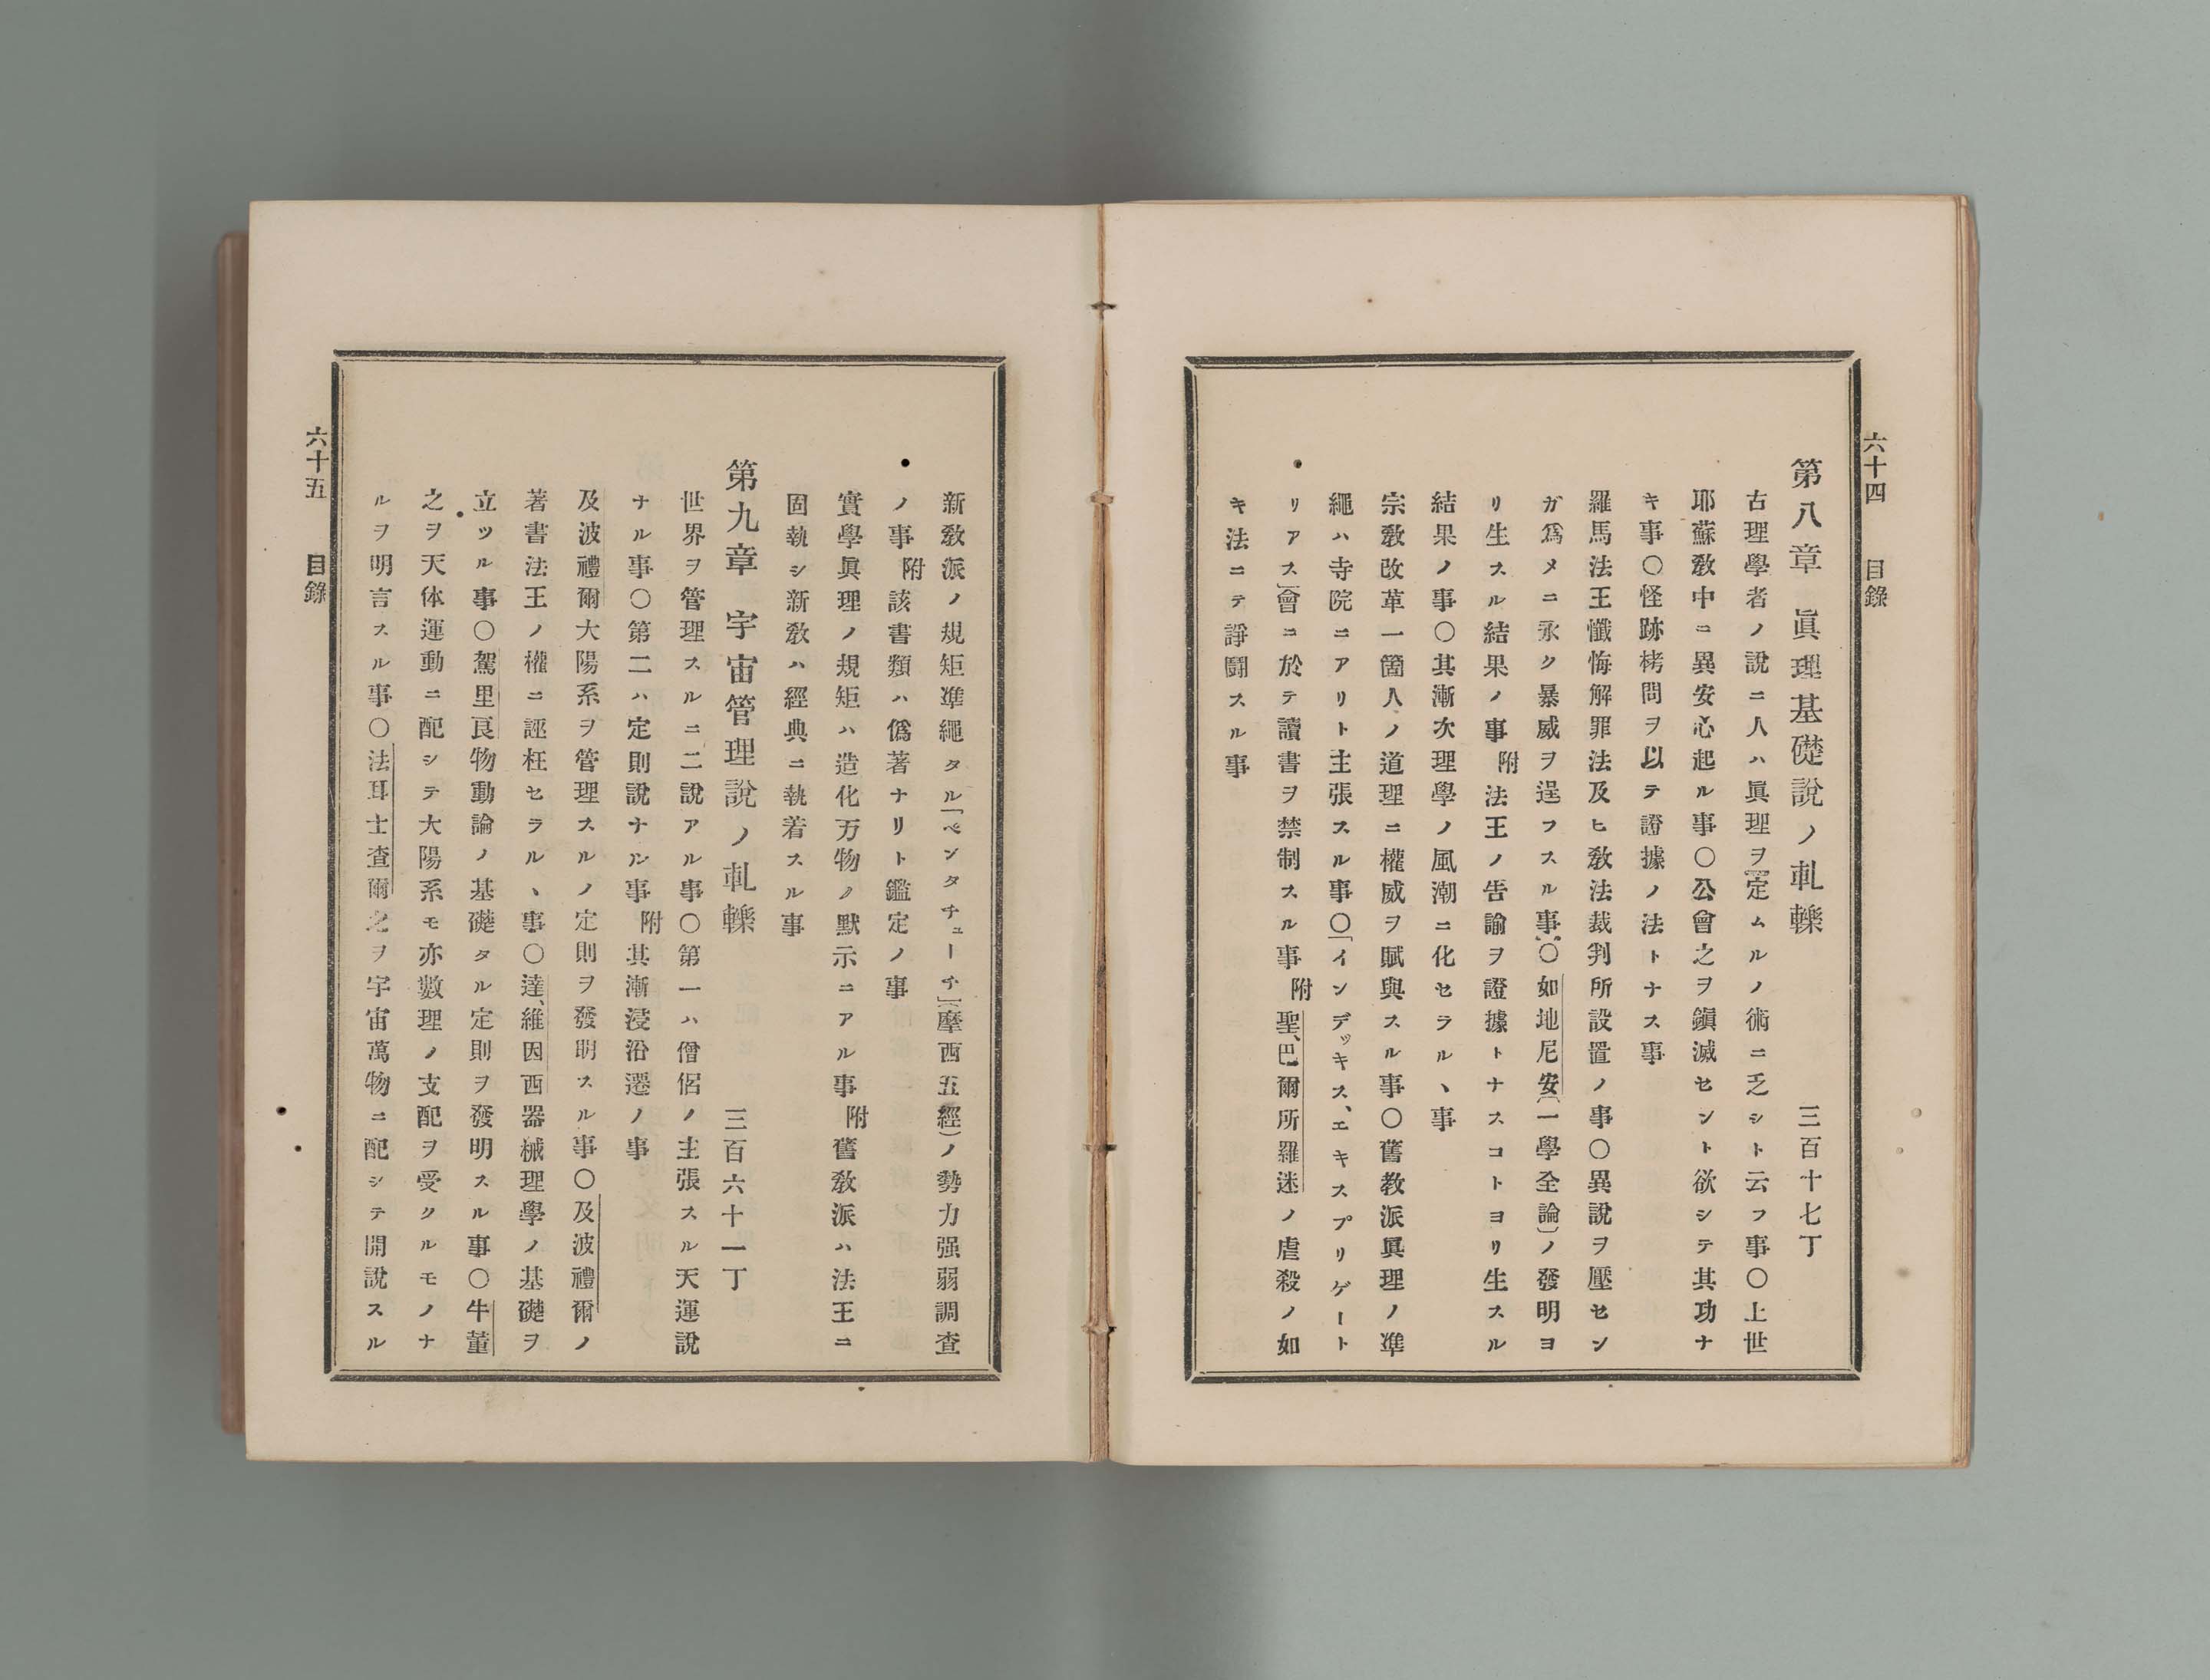 六十四　目錄
第八章　眞理基礎說ノ軋轢　三百十七丁
古理學者ノ說ニ人ハ眞理ヲ定ムルノ術ニ乏シト云フ事〇上世
耶蘇敎中ニ異安心起ル事〇公會之ヲ鎭滅セント欲シテ其功ナ
キ事〇怪跡栲問ヲ以テ證據ノ法トナス事
羅馬法王懺悔解罪法及ヒ敎法裁判所設置ノ事〇異說ヲ壓セン
ガ爲メニ永ク暴威ヲ逞フスル事〇如地尼安(一學全論)ノ發明ヨ
リ生スル結果ノ事附法王ノ告諭ヲ證據トナスコトヨリ生スル
結果ノ事〇其漸次理學ノ風潮ニ化セラルヽ事
宗敎改革一箇人ノ道理ニ權威ヲ賦與スル事〇舊敎派眞理ノ準
繩ハ寺院ニアリト主張スル事〇「インデッキス、エキスプリゲート
リアス」會ニ於テ讀書ヲ禁制スル事附聖、巴爾所羅迷ノ虐殺ノ如
キ法ニテ諍鬪スル事
新敎派ノ規矩準繩タル「ペンタチューチ」(摩西五經)ノ勢力强弱調査
ノ事附該書類ハ僞著ナリト鑑定ノ事
實學眞理ノ規矩ハ造化万物ノ默示ニアル事附舊敎派ハ法王ニ
固執シ新敎ハ經典ニ執着スル事
第九章　宇宙管理說ノ軋轢　三百六十一丁
世界ヲ管理スルニ二說アル事〇第一ハ僧侶ノ主張スル天運說
ナル事〇第二ハ定則說ナル事附其漸浸沿遷ノ事
及波禮爾大陽系ヲ管理スルノ定則ヲ發明スル事〇及波禮爾ノ
著書法王ノ權ニ誣枉セラルヽ事〇達、維因西器械理學ノ基礎ヲ
立ツル事〇駕里良物動論ノ基礎タル定則ヲ發明スル事〇牛董
之ヲ天体運動ニ配シテ大陽系モ亦數理ノ支配ヲ受クルモノナ
ルヲ明言スル事〇法耳士査爾之ヲ宇宙萬物ニ配シテ開說スル
六十五　目錄